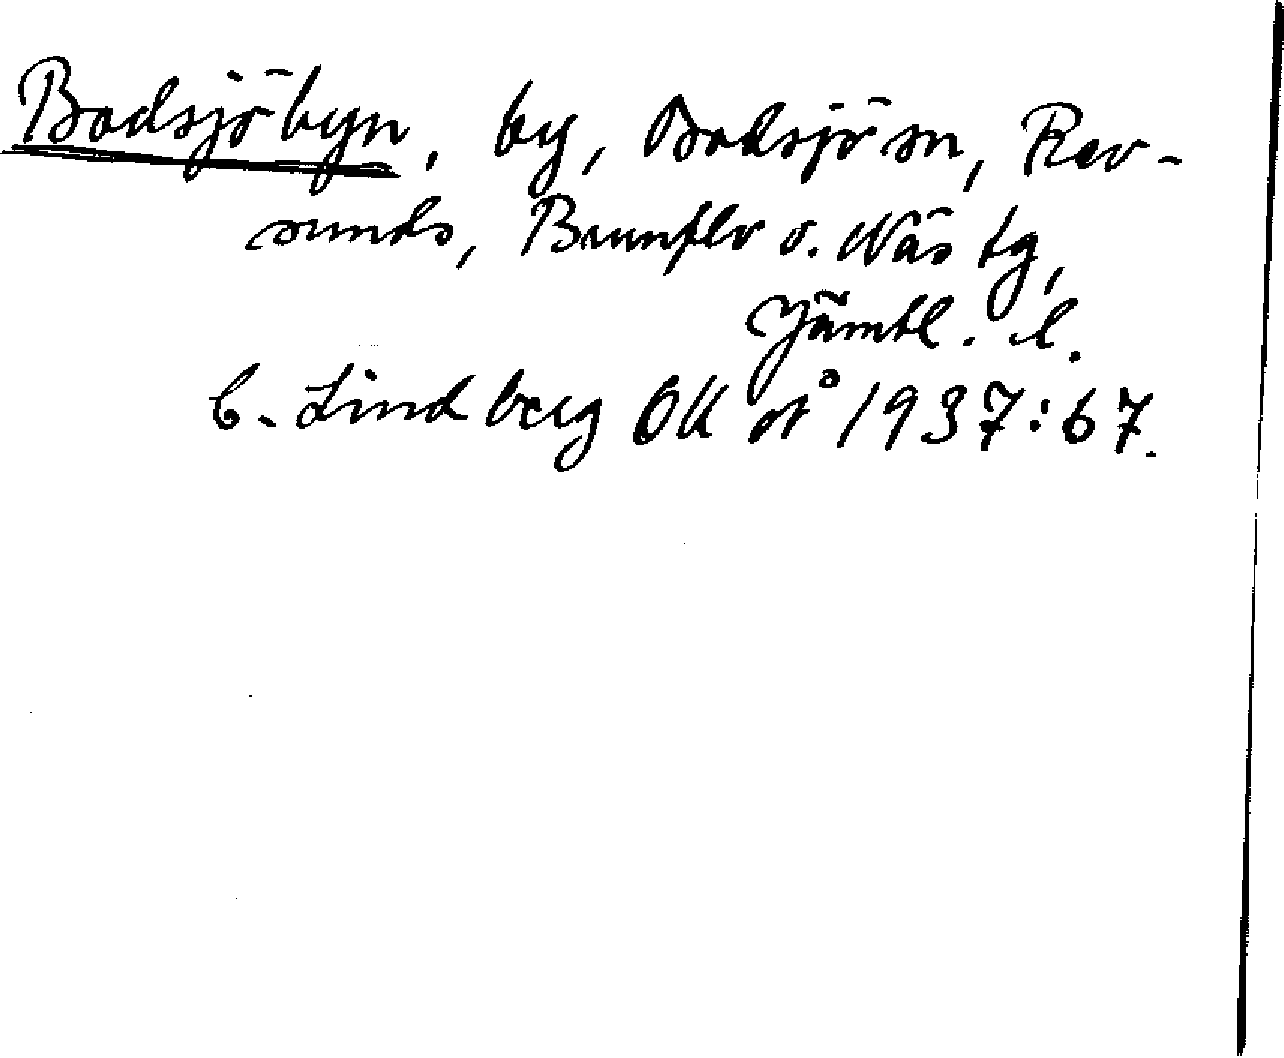 Bodsjöbyn, by, Bodsjö sn, Rev-
sunds, Brunflo o. Näs tg,
Jämtl. l.
C. Lindberg OU 1937:67.